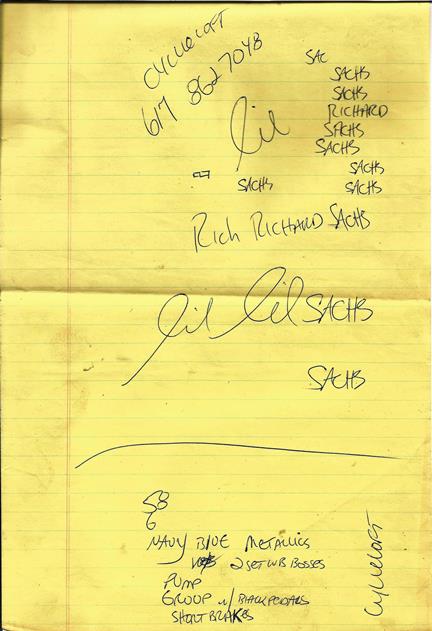 CYCLELOFT
617 862 7048
SAC
SACHS
SACHS
RICHARD
SACHS
SACHS
SACHS
SACHS SACHS
Rich RICHARD SACHS
SACHS
SACHS
58
6
NAVY BLUE METALLICS
2 SET WB BOSSES
PUMP
GROUP w/ BLACK PEDALS
SHORT BRAKES
CYCLELOFT